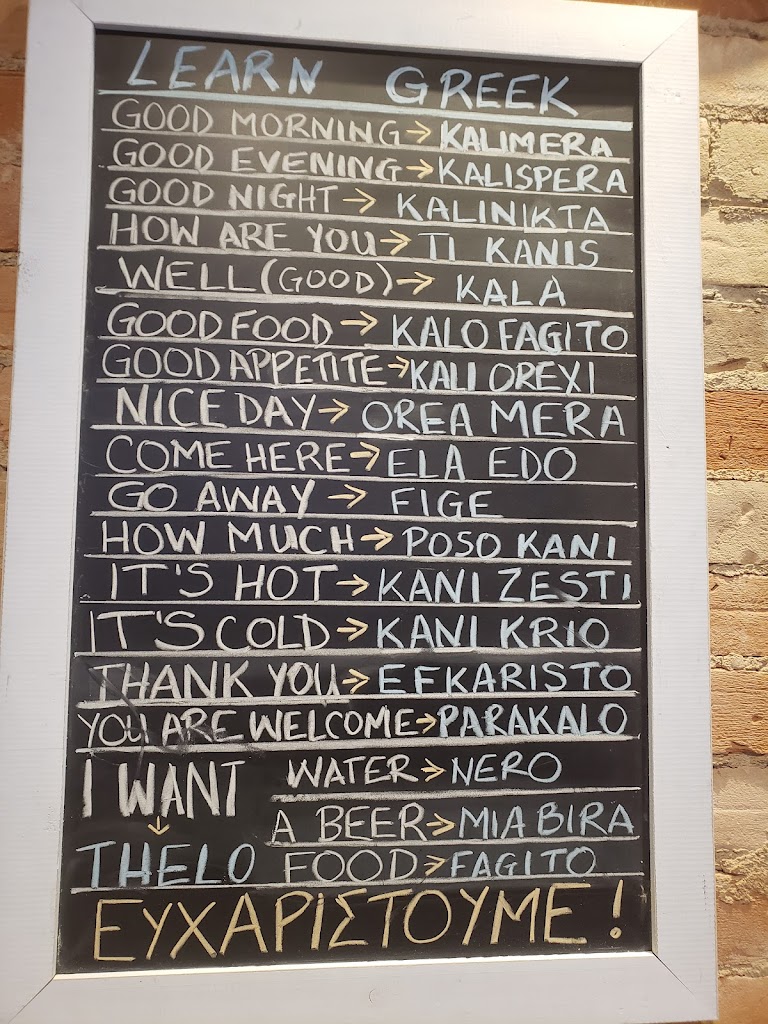 LEARN GREEK
GOOD MORNING → KALIMERA
GOOD EVENING → KALISPERA
GOOD NIGHT → KALINIKTA
HOW ARE YOU → TI KANIS
WELL (GOOD) → KALA
GOOD FOOD → KALO FAGITO
GOOD APPETITE → KALI OREXI
NICE DAY → OREA MERA
COME HERE → ELA EDO
GO AWAY → FIGE
HOW MUCH → POSO KANI
IT'S HOT → KANI ZESTI
IT'S COLD → KANI KRIO
THANK YOU → EFKARISTO
YOU ARE WELCOME → PARAKALO
I WANT
↓
THELO
WATER → NERO
A BEER → MIA BIRA
FOOD → FAGITO
ΕΥΧΑΡΙΣΤΟΥΜΕ!